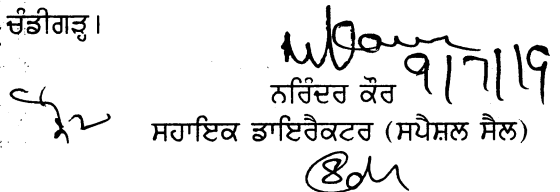 ਚੰਡੀਗੜ੍ਹ।
9/7/19
ਨਰਿੰਦਰ ਕੌਰ
ਸਹਾਇਕ ਡਾਇਰੈਕਟਰ (ਸਪੈਸ਼ਲ ਸੈਲ)